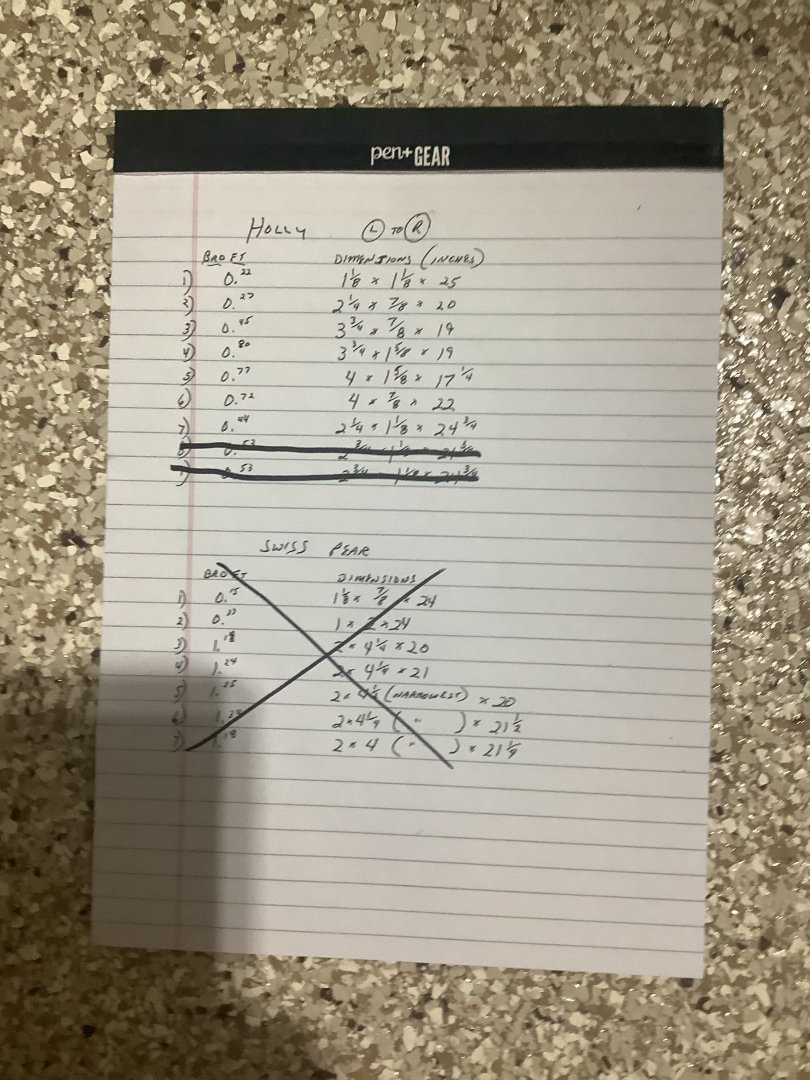 pen+GEAR
HOLLY (L) TO (R)
BRD FT DIMENSIONS (INCHES)
1) 0.22 1 1/8 × 1 1/8 × 25
2) 0.27 2 1/4 × 7/8 × 20
3) 0.45 3 3/4 × 7/8 × 19
4) 0.80 3 3/4 × 1 5/8 × 19
5) 0.77 4 × 1 5/8 × 17 1/4
6) 0.72 4 × 7/8 × 22
7) 0.44 2 1/4 × 1 1/8 × 24 3/4
0.53 2 3/4 1 1/8 21 3/4
0.53 2 3/4 1 1/8 × 21 3/4
SWISS PEAR
BRD FT DIMENSIONS
1) 0.15 1 1/8 × 7/8 × 24
2) 0.33 1 × 2 × 24
3) 1.18 2 × 4 1/4 × 20
4) 1.24 2 × 4 1/4 × 21
5) 1.25 2 × 4 1/2 (NARROWEST) × 20
6) 1.29 2 × 4 1/4 ( " ) × 21 1/2
7) 1.18 2 × 4 ( " ) × 21 1/4